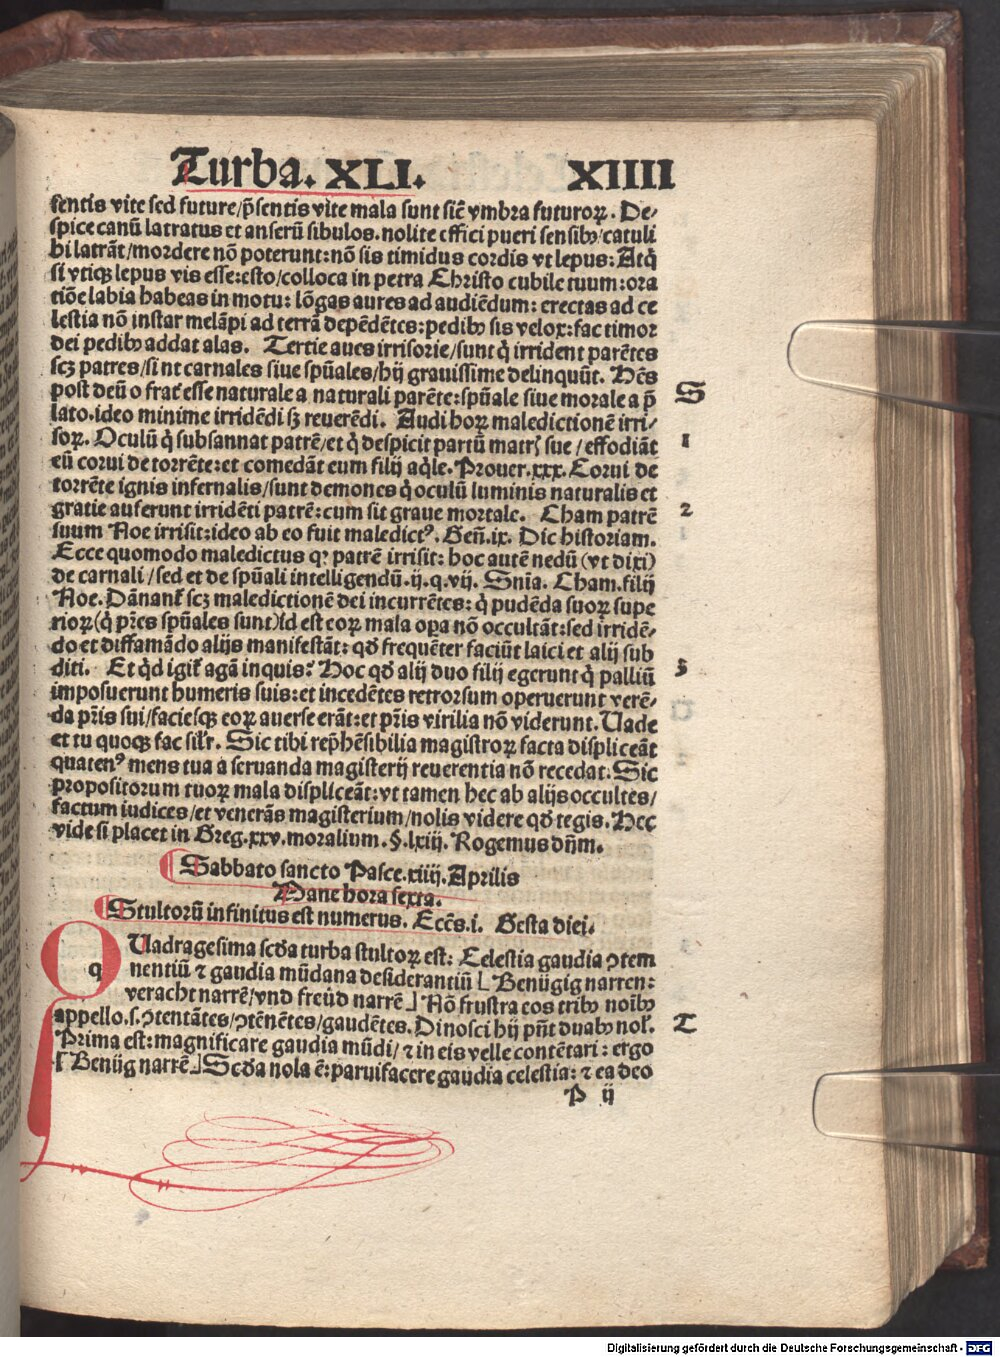 Turba. XLI. XIIII
sentis vite sed future/p̄sentis vite mala sunt sic̄ vmbra futuroꝝ. De⸗
spice canū latratus et anserū sibulos. nolite effici pueri sensibꝰ/catuli
hi latrāt/mordere nō poterunt: nō sis timidus cordis vt lepus: Atq̄
si vtiqꝫ lepus vis esse: esto/colloca in petra Christo cubile tuum: ora
tiōe labia habeas in motu: lōgas aures ad audiēdum: erectas ad ce
lestia nō instar melāpi ad terrā depēdētes: pedibꝰ sis velox: fac timor
dei pedibꝰ addat alas. Tertie aues irrisorie/sunt q̄ irrident parētes
scꝫ patres/si nt carnales siue spūales/hij grauissime delinquūt. Hēs
post deū o frat̄ esse naturale a naturali parēte: spūale siue morale a p̄
lato. ideo minime irridēdi sꝫ reuerēdi. Audi hoꝝ maledictionē irri⸗
soꝝ. Oculū q̄ subsannat patrē/et q̄ despicit partū matrꝭ sue/effodiāt
eū corui de torrēte: et comedāt eum filij aq̄le. Prouer. xxx. Corui de
torrēte ignis infernalis/sunt demones q̄ oculū luminis naturalis et
gratie auferunt irridēti patrē: cum sit graue mortale. Cham patrē
suum Noe irrisit: ideo ab eo fuit maledictꝰ. Gen̄. ix. Dic historiam.
Ecce quomodo maledictus qꝛ patrē irrisit: hoc autē nedū (vt dixi)
de carnali/sed et de spūali intelligendū. ij. q. vij. Sn̄ia. Cham. filij
Noe. Dānant̄ scꝫ maledictionē dei incurrētes: q̄ pudēda suoꝝ supe
rioꝝ (q̄ pr̄es spūales sunt) id est eoꝝ mala oꝑa nō occultāt: sed irridē⸗
do et diffamādo alijs manifestāt: qd̄ frequēter faciūt laici et alij sub
diti. Et q̄d igit̄ agā inquis? Hoc qd̄ alij duo filij egerunt q̄ palliū
imposuerunt humeris suis: et incedētes retrorsum operuerunt verē⸗
da pr̄is sui/faciesqꝫ eoꝝ auerse erāt: et pr̄is virilia nō viderunt. Uade
et tu quoqꝫ fac sil̄r. Sic tibi rep̄hēsibilia magistroꝝ facta displiceāt
quatenꝰ mens tua a seruanda magisterij reuerentia nō recedat: Sic
propositorum tuoꝝ mala displiceāt: vt tamen hec ab alijs occultes/
factum iudices/et venerās magisterium/nolis videre qd̄ tegis. Hec
vide si placet in Greg. xxv. moralium. §. lxiij. Rogemus dn̄m.
S
1
2
3
Sabbato sancto Pasce. xiiij. Aprilis
Mane hora sexta.
Stultorū infinitus est numerus. Eccēs. i. Gesta diei.
q
Uadragesima scd̄a turba stultoꝝ est: Celestia gaudia ꝯtem
nentiū ⁊ gaudia mūdana desiderantiū ⌊ Benügig narren:
veracht narrē/vnd freüd narrē⌋ Nō frustra eos tribꝰ noībꝰ
appello. s. ꝯtentātes/ꝯtēnētes/gaudētes. Dinosci hij pn̄t duabꝰ nol̄.
Prima est: magnificare gaudia mūdi/⁊ in eis velle contētari: ergo
⌈ Benüg narrē⌋ Scd̄a nola ē: paruifacere gaudia celestia: ⁊ ea deo
T
P ij
Digitalisierung gefördert durch die Deutsche Forschungsgemeinschaft - DFG